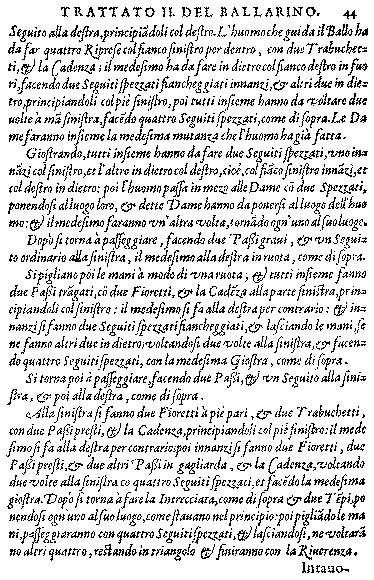 TRATTATO II. DEL BALLARINO. 44
Seguito alla destra, principiãdoli col destro. L'huomo che guida il Ballo ha
da far quattro Riprese col fianco sinistro per dentro, con due Trabuchet-
ti, & la Cadenza; il medesimo ha da fare in dietro col fianco destro in fuo
ri, facendo due Seguiti spezzati fiancheggiati innanzi, & altri due in die-
tro, principiandoli col piè sinistro, poi tutti insieme hanno da voltare due
volte à mã sinistra, facẽdo quattro Seguiti spezzati, come di sopra. Le Da
me faranno insieme la medesima mutanza che l'huomo hà già fatta.
Giostrando, tutti insieme hanno da fare due Seguiti spezzati, vno in-
nãzi col sinistro, et l'altro in dietro col destro, cioè, col fiãco sinistro innãzi, et
col destro in dietro: poi l'huomo passa in mezo alle Dame cõ due Spezzati,
ponendosi al luogo loro, & dette Dame hanno da ponersi al luogo dell'huo
mo: & il medesimo faranno vn'altra volta, tornãdo ogn'uno al suo luogo.
Dopò si torna à passeggiare, facendo due Passi graui, & vn Segui-
to ordinario alla sinistra, il medesimo alla destra in ruota, come di sopra.
Si pigliano poi le mani à modo di vna ruota, & tutti insieme fanno
due Passi trãgati, cõ due Fioretti, & la Cadẽza alla parte sinistra, prin-
cipiandoli col sinistro: il medesimo si fa alla destra per contrario: & in-
nanzi si fanno due Seguiti spezzati fiancheggiati, & lasciando le mani, se
ne fanno altri due in dietro, voltandosi due volte alla sinistra, & facen-
do quattro Seguiti spezzati, con la medesima Giostra, come di sopra.
Si torna poi à passeggiare, facendo due Passi, & vn Seguito alla sini-
stra, & poi alla destra, come di sopra.
Alla sinistra si fanno due Fioretti à piè pari, & due Trabuchetti,
con due Passi presti, & la Cadenza, principiandoli col piè sinistro: il mede
simo si fa alla destra per contrario: poi innanzi si fanno due Fioretti, due
Passi presti, & due altri Passi in gagliarda, & la Cadenza, voltando
due volte alla sinistra co quattro Seguiti spezzati, et facẽdo la medesima
giostra. Dopò si torna à fare la Intrecciata, come di sopra & due Tẽpi, po
nendosi ogn'uno al suo luogo, come stauano nel principio: poi pigliãdo le ma
ni, passeggiaranno con quattro Seguiti spezzati, & lasciandosi, ne voltarã
no altri quattro, restando in triangolo & finiranno con la Riuerenza.
Intauo-